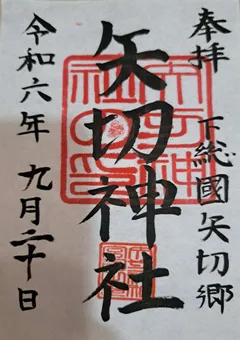 奉拝 下総國矢切郷
矢切神社
令和六年 九月二十日